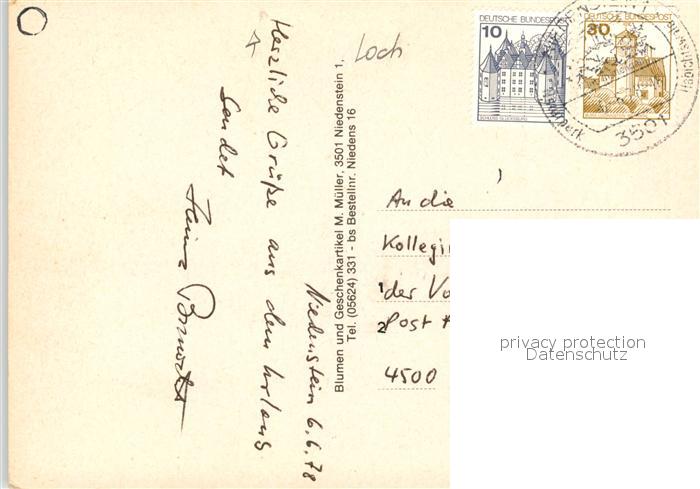 Loch
Niedenstein 6.6.78
Herzliche Grüße aus dem Urlaub
Sendet
Blumen und Geschenkartikel M. Müller, 3501 Niedenstein 1,
Tel. (05624) 331 - bs Bestellnr. Niedens 16
DEUTSCHE BUNDESPOST
10
SCHLOSS GLÜCKSBURG
DEUTSCHE BUNDESPOST
30
3501
An die
Kollegi
1
der Vo
2
Post
4500
privacy protection
Datenschutz